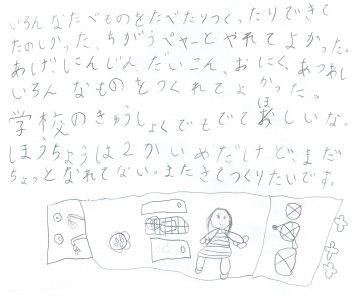 いろんなたべものをたべたりつくったりできて
たのしかった。ちがうペヤーとやれてよかった。
あげ、にんじん、だいこん、おにく、あつあげ
いろんなものをつくれてよかった。
学校のきゅうしょくでもでてほしいな。
ほうちょうは2かいめだけど、まだ
ちょっとなれてない。またきてつくりたいです。